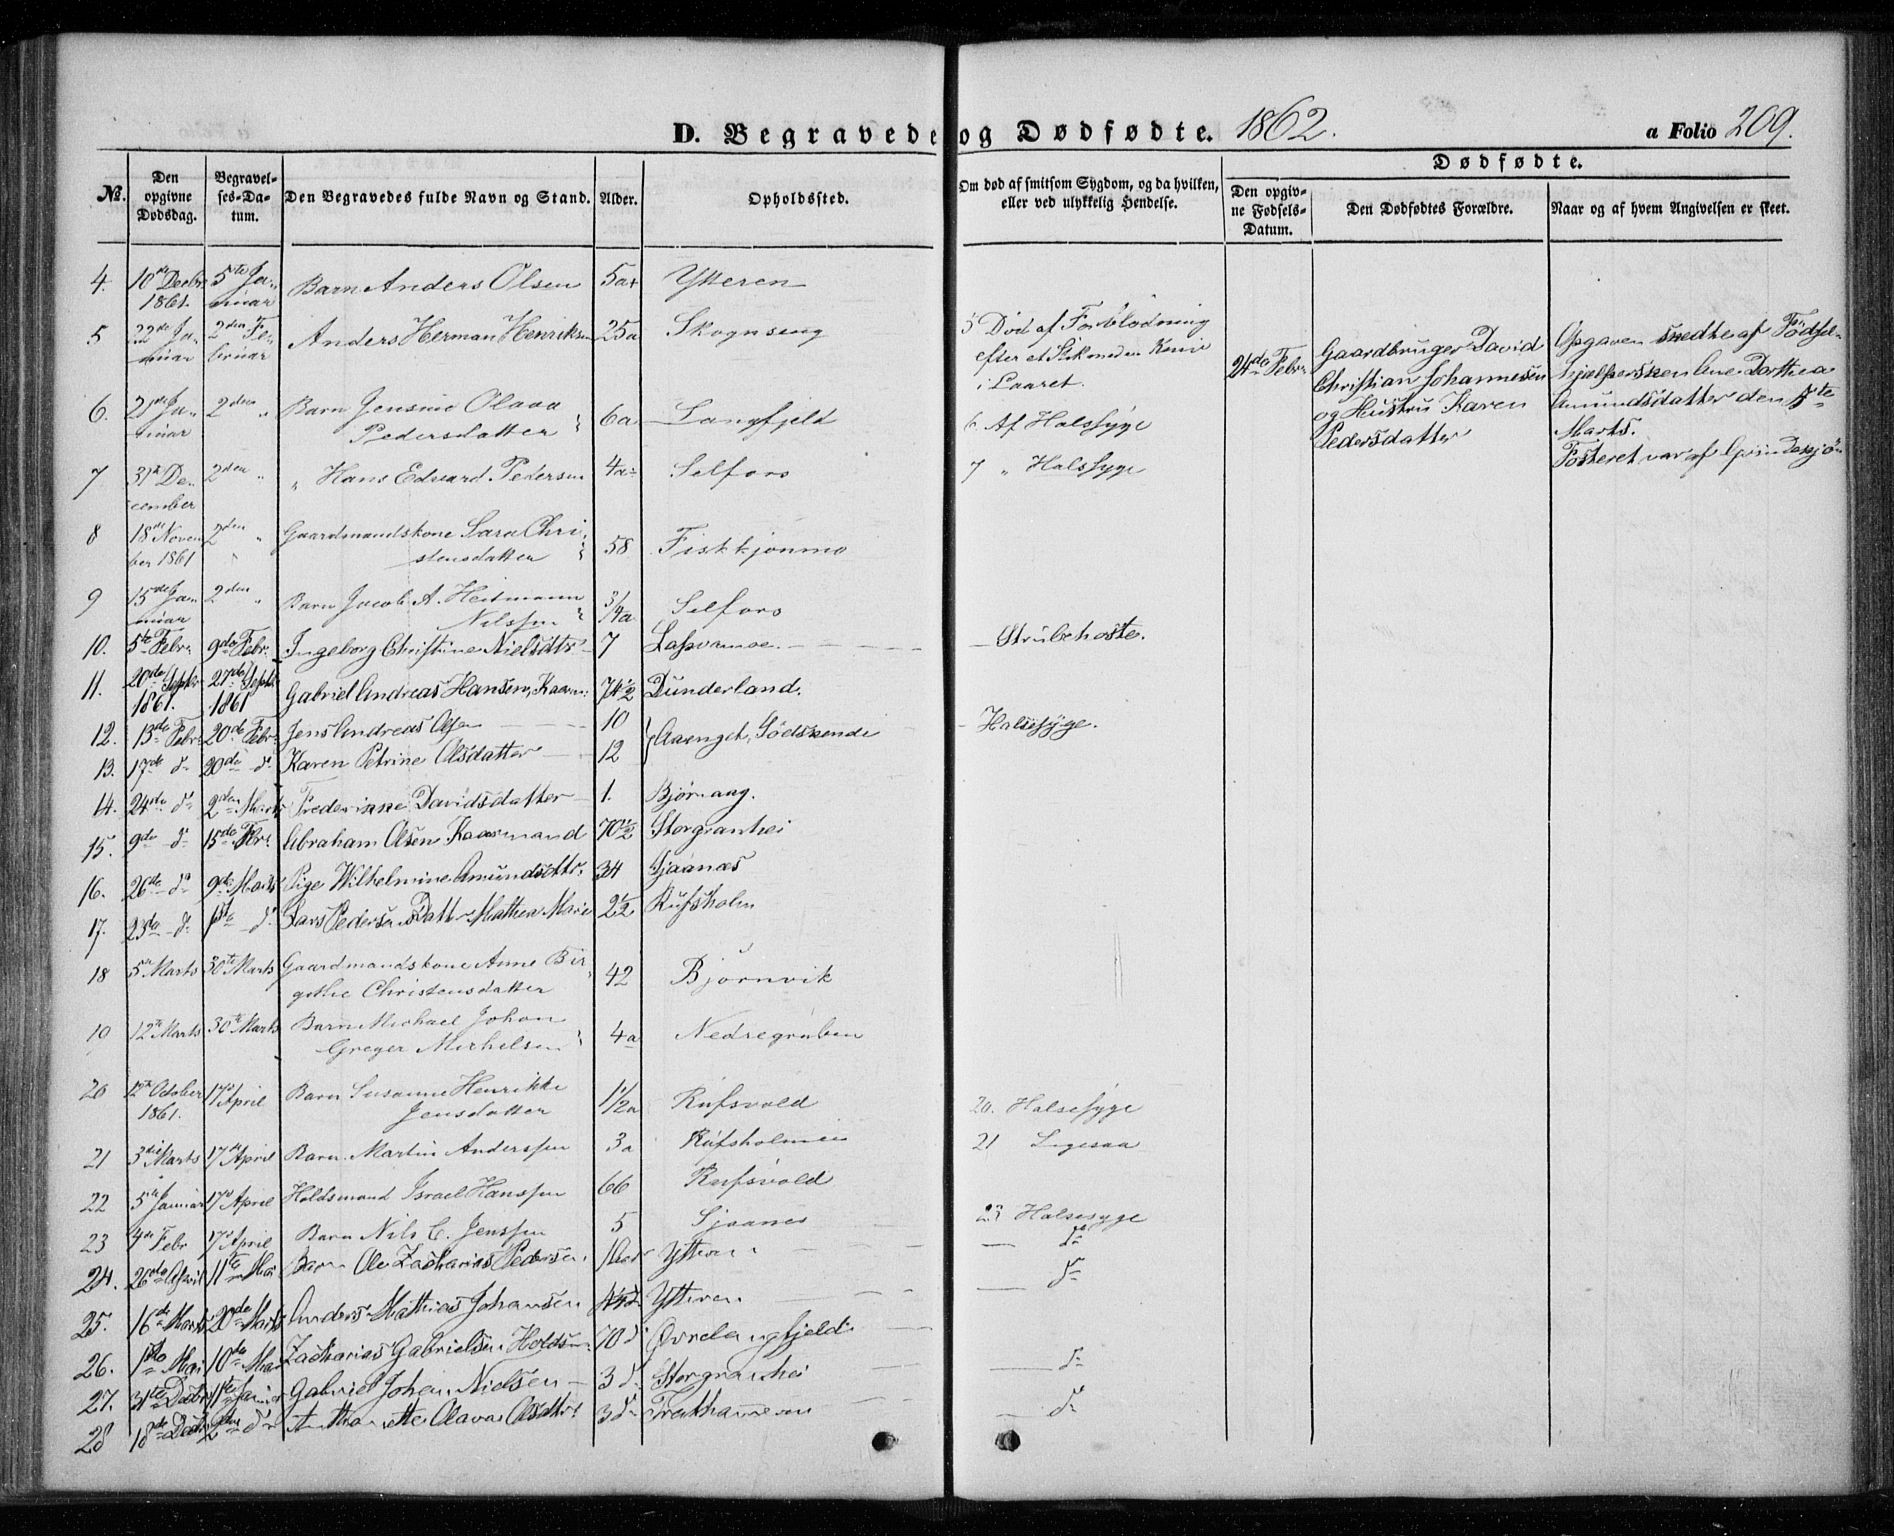 D. Begravede og Dødfødte. 1862. a Folio 209.
Dødfødte.
No. Den opgivne Dødsdag. Begravelses-Datum. Den Begravedes fulde Navn og Stand. Alder. Opholdssted. Om død af smitsom Sygdom, og da hvilken, eller ved ulykkelig Hendelse. Den opgivne Fødsels-Datum. Den Dødfødtes Forældre. Naar og af hvem Angivelsen er skeet.
4. 10de Decbr 1861. 5te Januar Barn Anders Olsen 5a Ytteren
5 22de Januar 2den Februar Anders Herman Henriksen 25a Skognseng 5 Død af Forblødning efter et Stik med en Kniv i Laaret.
24de Febr. Gaardbruger David Christian Johannesen og Hustru Karen Pedersdatter
Opgaven skedte af Födselhjælpersken Ane Dorthea Amundsdatter den 5te Marts.
Fosteret var af
6. 21de Januar 2den " Barn Jensine Olava Pedersdatter 6a Langfjeld 6. Af Halssyge
7 31te December 2den " " Hans Edvard Pedersen 4a Selfors 7 " Halssyge
8 18de November 1861 2den " Gaardmandskone Sara Christensdatter 58 Fiskkjønmo
9 15de Januar 2den " Barn Jacob A. Heitmann Nilssen 3/4a Selfors
10. 5te Febr. 9de Febr. Ingeborg Christine Nielsdtr 7 Lapvamoe. Strubehoste.
11. 20de Septbr 1861. 27de Septbr 1861 Gabriel Andreas Hansen, Kaarm: 74 1/2 Dunderland.
12. 13de Febr. 20de Febr. Jens Andreas Olsen 10 Aaenget, Södskende Halsesyge.
13. 17de do 20de do Karen Petrine Olsdatter 12
14. 24de do 2den Marts Frederikke Davidsdatter 1. Bjørnaag.
15. 9de do 15de Febr. Abraham Olsen Kaarmand 70 1/2 Storgranhei
16. 26de do 9de Marts Pige Wilhelmine Amundsdttr. 34 Sjaanæs
17. 23de do 1ste do Lars Pedersens Datt. Mathea Marie 2 1/2 Rufsholm
18 5te Marts 30te Marts Gaardmandskone Anne Birgithe Christensdatter 42 Bjørnvik
19 12te Marts 30te Marts Barn Michael Johan Greger Mikelsen 4a Nedregruben
20 12te October 1861. 17de April Barn Susanne Henrikke Jensdatter 1 1/2a Rufsvold 20. Halsesyge
21 3die Marts 17de April Barn Martin Anderssen 3a Rufsholmen 21
22 5te Januar 17de April Holdsmand Israel Hanssen 66 Rufsvold
23 4de Febr 17de April Barn Nils C. Jenssen 5 Sjaanes 23 Halsesyge
24. 26de April 11te Mai Barn Ole Zacharias Pedersen Ytteren do
25. 16de Marts 20de Marts Anders Mathias Johansen Ytteren do
26. 1ste Mai 10de Mai Zacharias Gabrielsen Holdsm. 70 do Øvrelangfjeld
27. 31te Decbr 11te Januar Gabriel Johan Nielsen 3 do Storgranhei do
28 18de Decbr 2den do Anthonette Olava Olsdttr 3 do do